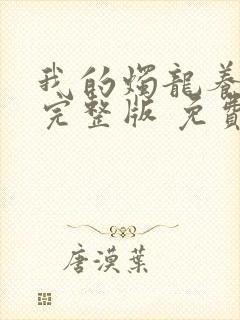 我的燭龍養
完整版 免費
唐漠葉